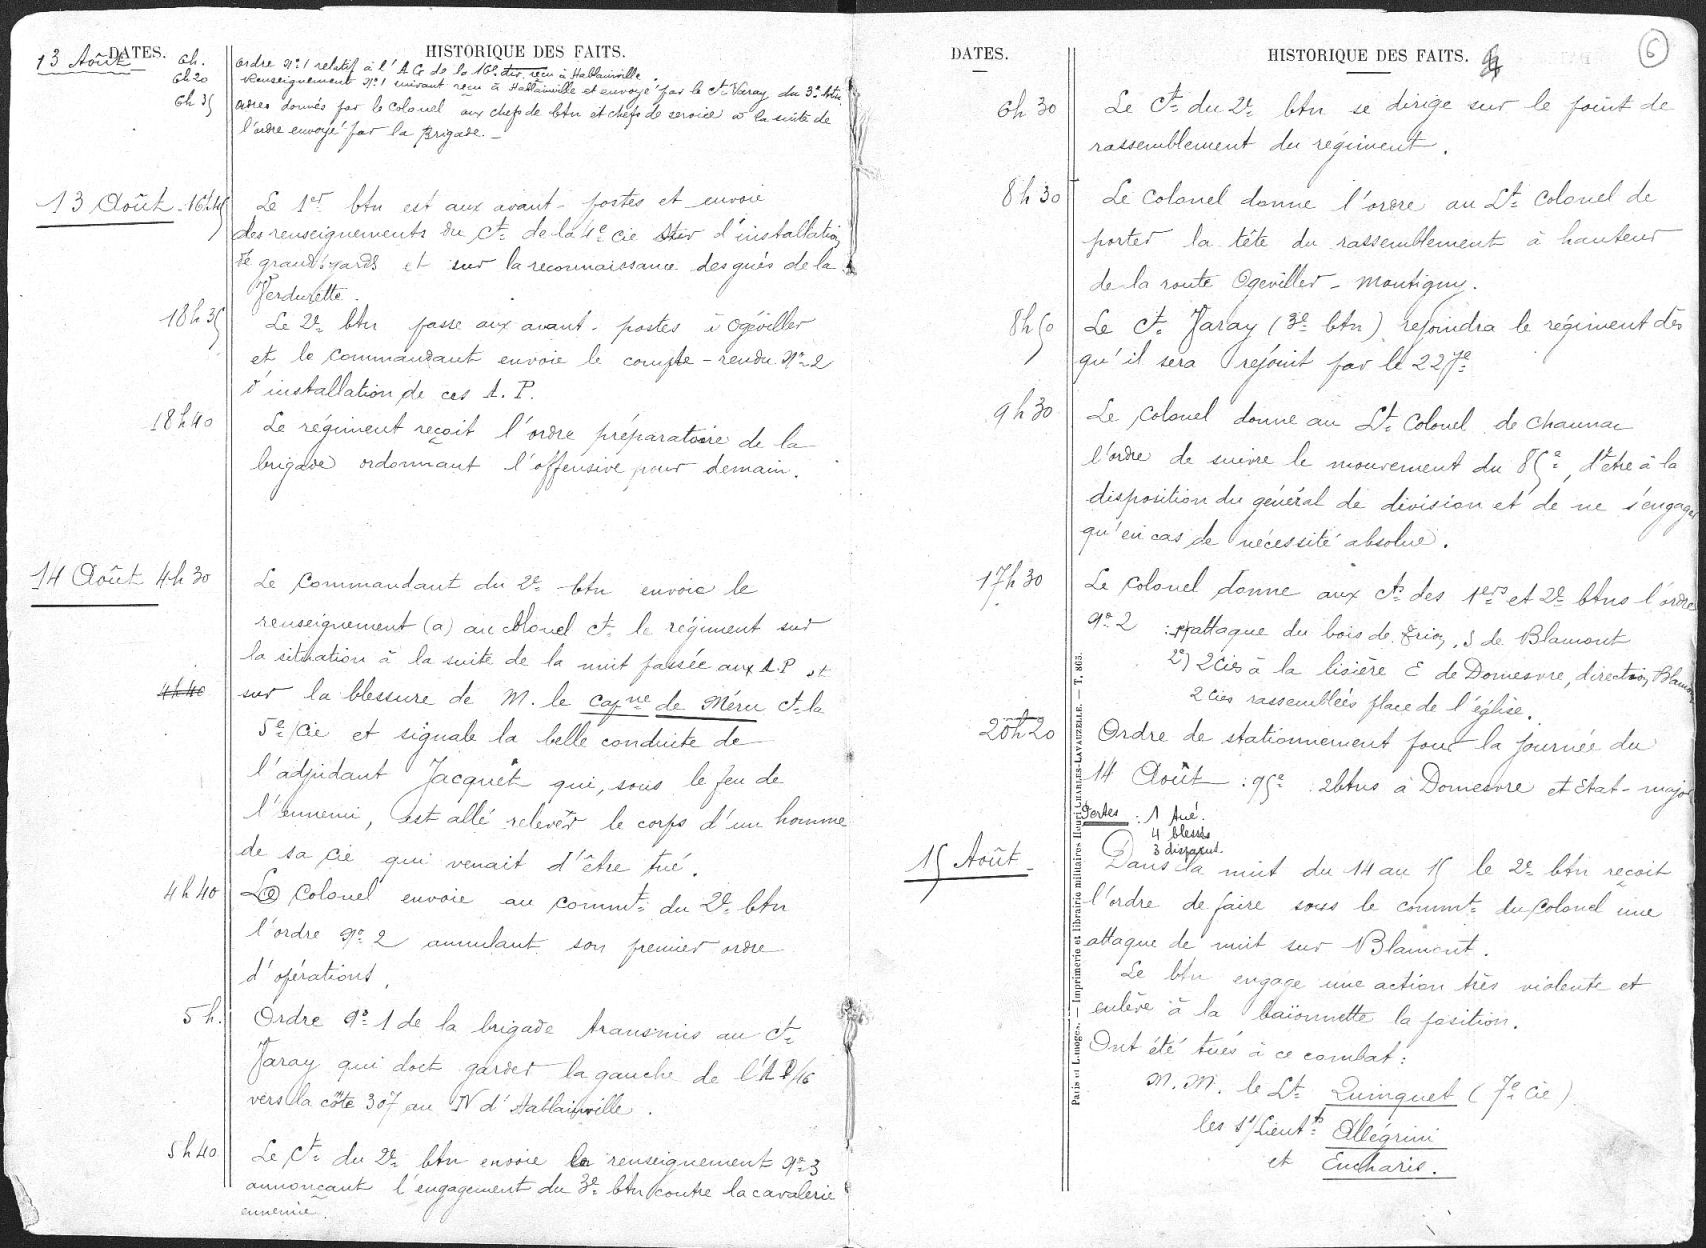 DATES. HISTORIQUE DES FAITS.
13 Août 6h. Ordre N° 1 relatif à l'A G de la 16e div. reçu à Hablainville.
6h20 Renseignement N° 1 suivant reçu à Hablainville et envoyé par le Ct Varay du 3e btn
6h35 Ordres donnés par le Colonel aux chefs de btn et chefs de service à la suite de
l'ordre envoyé par la Brigade. —
13 Août 16h45 Le 1er btn est aux avant-postes et envoie
des renseignements du Ct de la 4e Cie sur d'installation
de grand'gardes et sur la reconnaissance des gués de la
Verdurette.
18h35 Le 2e btn passe aux avant-postes à Ogéviller
et le Commandant envoie le compte-rendu N° 2
d'installation de ces A. P.
18h40 Le régiment reçoit l'ordre préparatoire de la
brigade ordonnant l'offensive pour demain.
14 Août 4h30 Le Commandant du 2e btn envoie le
renseignement (a) au Colonel Ct le régiment sur
la situation à la suite de la nuit passée aux A.P et
4h40 sur la blessure de M. le Capne de Méru Ct la
5e Cie et signale la belle conduite de
l'adjudant Jacquet qui, sous le feu de
l'ennemi, est allé relever le corps d'un homme
de sa Cie qui venait d'être tué.
4h40 Le Colonel envoie au Commt du 2e btn
l'ordre N° 2 annulant son premier ordre
d'opérations.
5h. Ordre N° 1 de la brigade transmis au Ct
Varay qui doit garder la gauche de l'A P/16
vers la côte 307 au N d'Hablainville.
5h40 Le Ct du 2e btn envoie le renseignement N° 3
annonçant l'engagement du 3e btn contre la cavalerie
ennemie.
DATES. HISTORIQUE DES FAITS. 6
6h30 Le Ct du 2e btn se dirige sur le point de
rassemblement du régiment.
8h30 Le Colonel donne l'ordre au Lt Colonel de
porter la tête du rassemblement à hauteur
de la route Ogéviller - Montigny.
8h50 Le Ct Varay (3e btn) rejoindra le régiment dès
qu'il sera rejoint par le 227e
9h30 Le Colonel donne au Lt Colonel de Chaunac
l'ordre de suivre le mouvement du 85e, d'être à la
disposition du général de division et de ne s'engager
qu'en cas de nécessité absolue.
17h30 Le Colonel donne aux Cts des 1ers et 2e btns l'ordre
N° 2 : attaque du bois de Trion, S de Blamont
2e) 2 Cies à la lisière E de Domesvre, direction Blamont
2 Cies rassemblées place de l'église.
20h20 Ordre de stationnement pour la journée du
14 Août : 95e : 2 btns à Domesvre et Etat-major
Pertes : 1 tué.
4 blessés
3 disparut.
15 Août. Dans la nuit du 14 au 15 le 2e btn reçoit
l'ordre de faire sous le commt du Colonel une
attaque de nuit sur Blamont.
Le btn engage une action très violente et
enlève à la baïonnette la position.
Ont été tués à ce combat :
M.M. le Lt Quinquet (7e Cie)
les S/Lieutts Allégrini
et Eucharis.
Paris et Limoges. — Imprimerie et librairie militaires Henri CHARLES-LAVAUZELLE. — T. 865.